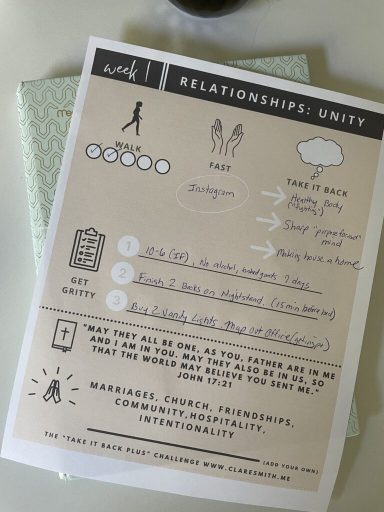 week 1
RELATIONSHIPS: UNITY
me
WALK
FAST
Instagram
TAKE IT BACK
Healthy Body
Sharp "purpose-driven"
mind
Making house a home
GET
GRITTY
1 10-6 (IF), No alcohol, baked goods 7 days
2 Finish 2 Books on Nightstand. (15 min before bed)
3 Buy 2 Vandy Lights Map out Office
"MAY THEY ALL BE ONE, AS YOU, FATHER ARE IN ME
AND I AM IN YOU. MAY THEY ALSO BE IN US, SO
THAT THE WORLD MAY BELIEVE YOU SENT ME."
JOHN 17:21
MARRIAGES, CHURCH, FRIENDSHIPS,
COMMUNITY, HOSPITALITY,
INTENTIONALITY
(ADD YOUR OWN)
THE "TAKE IT BACK PLUS" CHALLENGE WWW.CLARESMITH.ME